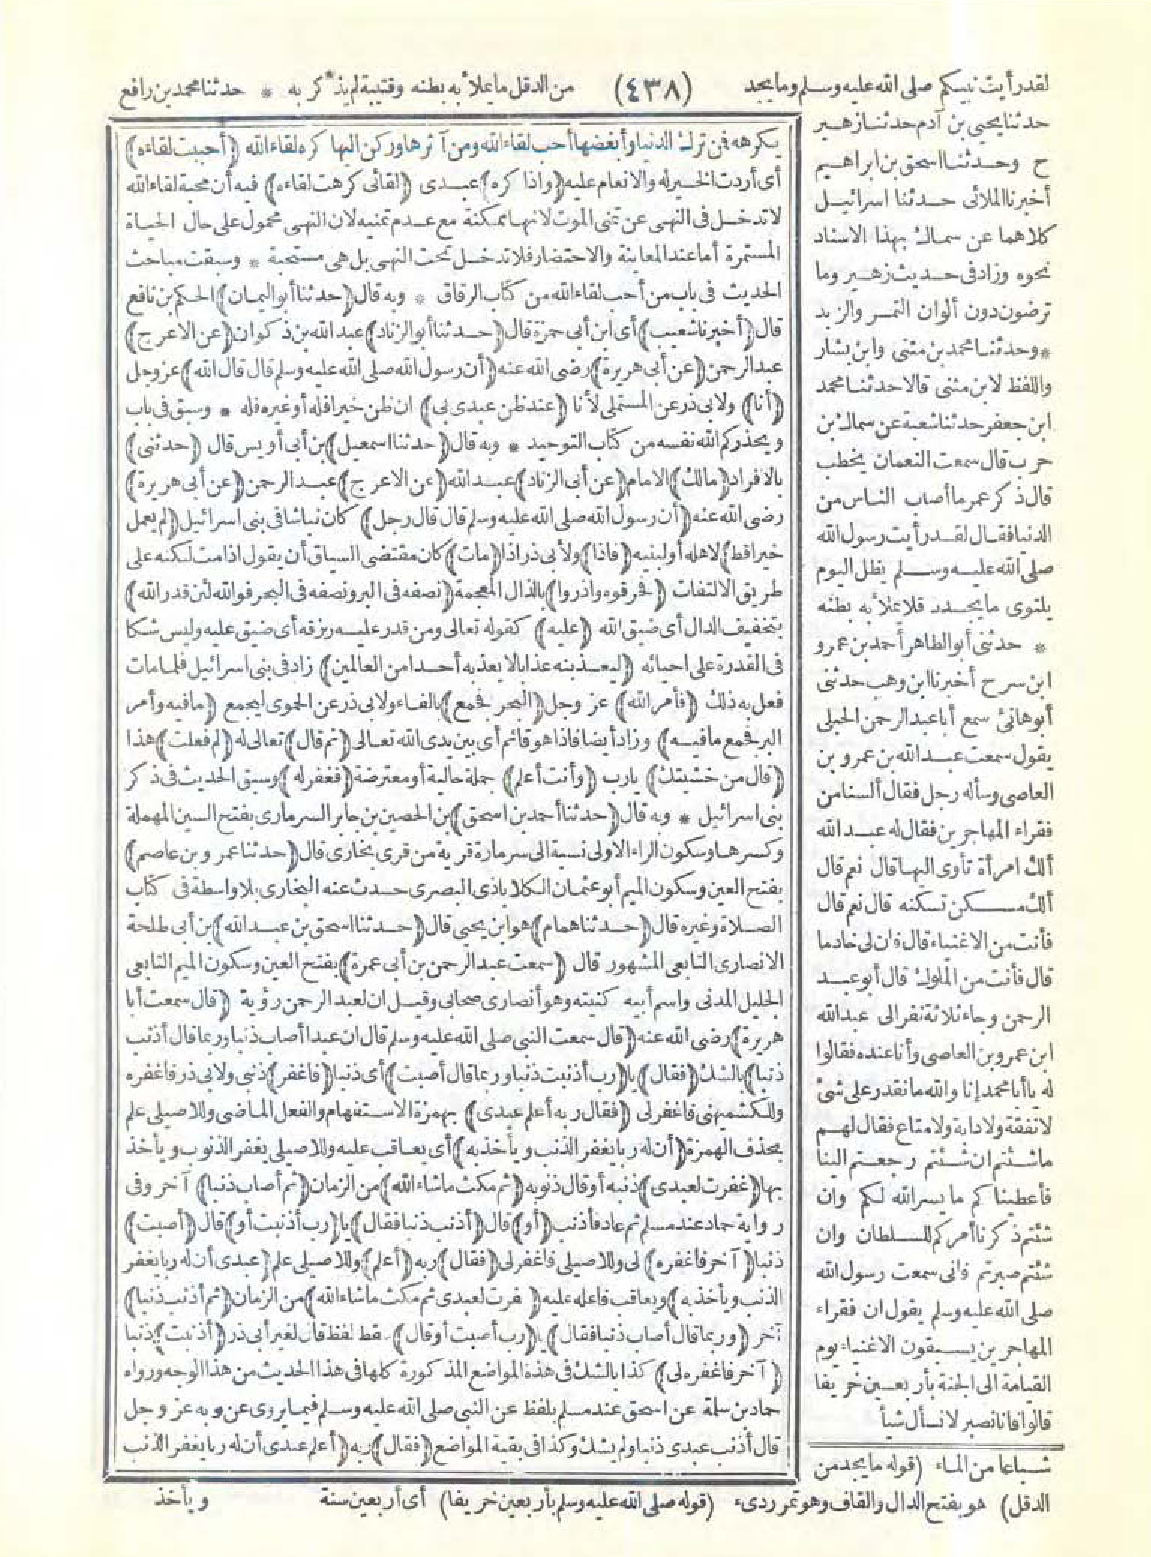 لقد رأيت نبيكم صلى الله عليه وسلم وما يجد (٤٣٨) من الدقل ما يملأ به بطنه وقتيبة لم يذكر به * حدثنا محمد بن رافع
حدثنا يحيى بن آدم حدثنا زهير
ح وحدثنا اسحق بن ابراهيم
أخبرنا الملائى حدثنا اسرائيل
كلاهما عن سماك بهذا الاسناد
نحوه وزاد فى حديث زهير وما
ترضون دون ألوان التمر والزبد
* وحدثنا محمد بن مثنى وابن بشار
واللفظ لابن مثنى قالا حدثنا محمد
ابن جعفر حدثنا شعبة عن سماك بن
حرب قال سمعت النعمان يخطب
قال ذكر عمر ما أصاب الناس من
الدنيا فقال لقد رأيت رسول الله
صلى الله عليه وسلم يظل اليوم
يلتوى ما يجد دقلا يملأ به بطنه
* حدثنى أبو الطاهر أحمد بن عمرو
ابن سرح أخبرنا ابن وهب حدثنى
أبو هانئ سمع أبا عبد الرحمن الحبلى
يقول سمعت عبد الله بن عمرو بن
العاصى وسأله رجل فقال ألسنا من
فقراء المهاجرين فقال له عبد الله
ألك امرأة تأوى اليها قال نعم قال
ألك مسكن تسكنه قال نعم قال
فأنت من الاغنياء قال فان لى خادما
قال فأنت من الملوك قال أبو عبد
الرحمن وجاء ثلاثة نفر الى عبد الله
ابن عمرو بن العاصى وأنا عنده فقالوا
له يا أبا محمد إنا والله ما نقدر على شئ
لا نفقة ولا دابة ولا متاع فقال لهم
ما شئتم ان شئتم رجعتم الينا
فأعطيناكم ما يسر الله لكم وان
شئتم ذكرنا أمركم للسلطان وان
شئتم صبرتم فانى سمعت رسول الله
صلى الله عليه وسلم يقول ان فقراء
المهاجرين يسبقون الاغنياء يوم
القيامة الى الجنة بأربعين خريفا
قالوا فانا نصبر لا نسأل شيأ
يكرهه فمن ترك الدنيا وأبغضها أحب لقاء الله ومن آثرها وركن اليها كره لقاء الله (أحببت لقاءه)
أى أردت الخير له والانعام عليه (واذا كره) عبدى (لقائى كرهت لقاءه) فيه أن محبة لقاء الله
لا تدخل فى النهى عن تمنى الموت لانها ممكنة مع عدم تمنيه لان النهى محمول على حال الحياة
المستمرة أما عند المعاينة والاحتضار فلا تدخل تحت النهى بل هى مستحبة * وسبقت مباحث
الحديث فى باب من أحب لقاء الله من كتاب الرقاق * وبه قال (حدثنا أبو اليمان) الحكم بن نافع
قال (أخبرنا شعيب) أى ابن أبى حمزة قال (حدثنا أبو الزناد) عبد الله بن ذكوان (عن الاعرج)
عبد الرحمن (عن أبى هريرة) رضى الله عنه (أن رسول الله صلى الله عليه وسلم قال قال الله) عز وجل
(أنا) ولابى ذر عن المستملى لأنا (عند ظن عبدى بى) ان ظن خيرا فله أو غيره فله * وسبق فى باب
ويحذركم الله نفسه من كتاب التوحيد * وبه قال (حدثنا اسمعيل) بن أبى أويس قال (حدثنى)
بالافراد (مالك) الامام (عن أبى الزناد) عبد الله (عن الاعرج) عبد الرحمن (عن أبى هريرة)
رضى الله عنه (أن رسول الله صلى الله عليه وسلم قال قال رجل) كان نباشا فى بنى اسرائيل (لم يعمل
خيرا قط) لاهله أو لبنيه (فاذا) ولأبى ذر اذا (مات) كان مقتضى السياق أن يقول اذا مت لكنه على
طريق الالتفات (فحرقوه واذروا) بالذال المعجمة (نصفه فى البر ونصفه فى البحر فوالله لئن قدر الله)
بتخفيف الدال أى ضيق الله (عليه) كقوله تعالى ومن قدر عليه رزقه أى ضيق عليه وليس شكا
فى القدرة على احيائه (ليعذبنه عذابا لا يعذبه أحدا من العالمين) زاد فى بنى اسرائيل فلما مات
فعل به ذلك (فأمر الله) عز وجل (البحر فجمع) بالفاء ولابى ذر عن الحموى ليجمع (ما فيه وأمر
البر فجمع ما فيه) وزاد أيضا فاذا هو قائم أى بين يدى الله تعالى (ثم قال) تعالى له (لم فعلت) هذا
(قال من خشيتك) يا رب (وأنت أعلم) جملة حالية أو معترضة (فغفر له) وسبق الحديث فى ذكر
بنى اسرائيل * وبه قال (حدثنا أحمد بن اسحق) بن الحصين بن جابر السرمارى بفتح السين المهملة
وكسرها وسكون الراء الاولى نسبة الى سرمارة قرية من قرى بخارى قال (حدثنا عمرو بن عاصم)
بفتح العين وسكون الميم أبو عثمان الكلاباذى البصرى حدث عنه البخارى بلا واسطة فى كتاب
الصلاة وغيره قال (حدثنا همام) هو ابن يحيى قال (حدثنا اسحق بن عبد الله) بن أبى طلحة
الانصارى التابعى المشهور قال (سمعت عبد الرحمن بن أبى عمرة) بفتح العين وسكون الميم التابعى
الجليل المدنى واسم أبيه كنيته وهو أنصارى صحابى وقيل ان لعبد الرحمن رؤية (قال سمعت أبا
هريرة) رضى الله عنه (قال سمعت النبى صلى الله عليه وسلم قال ان عبدا أصاب ذنبا وربما قال أذنب
ذنبا) بالشك (فقال) يا (رب أذنبت ذنبا وربما قال أصبت) أى ذنبا (فاغفر) ذنبى ولابى ذر فاغفره
وللكشميهنى فاغفر لى (فقال ربه أعلم عبدى) بهمزة الاستفهام والفعل الماضى وللاصيلى علم
بحذف الهمزة (أن له ربا يغفر الذنب ويأخذ به) أى يعاقب عليه وللاصيلى يغفر الذنوب ويأخذ
بها (غفرت لعبدى) ذنبه أو قال ذنوبه (ثم مكث ما شاء الله) من الزمان (ثم أصاب ذنبا) آخر وفى
رواية حماد عند مسلم ثم عاد فأذنب (أو) قال (أذنب ذنبا فقال) يا (رب أذنبت أو) قال (أصبت)
ذنبا (آخر فاغفره) لى وللاصيلى فاغفر لى (فقال) ربه (أعلم) وللاصيلى علم (عبدى أن له ربا يغفر
الذنب ويأخذ به) ويعاقب فاعله عليه (غفرت لعبدى ثم مكث ما شاء الله) من الزمان (ثم أذنب ذنبا)
آخر (وربما قال أصاب ذنبا فقال) يا (رب أصبت أو قال) سقط لفظ قال لغير أبى ذر (أذنبت) ذنبا
(آخر فاغفره لى) كذا بالشك فى هذه المواضع المذكورة كلها فى هذا الحديث من هذا الوجه ورواه
حماد بن سلمة عن اسحق عند مسلم بلفظ عن النبى صلى الله عليه وسلم فيما يروى عن ربه عز وجل
قال أذنب عبدى ذنبا ولم يشك وكذا فى بقية المواضع (فقال) ربه (أعلم عبدى أن له ربا يغفر الذنب
شباعا من الماء (قوله ما يجد من
الدقل) هو بفتح الدال والقاف وهو تمر ردىء (قوله صلى الله عليه وسلم بأربعين خريفا) أى أربعين سنة ويأخذ